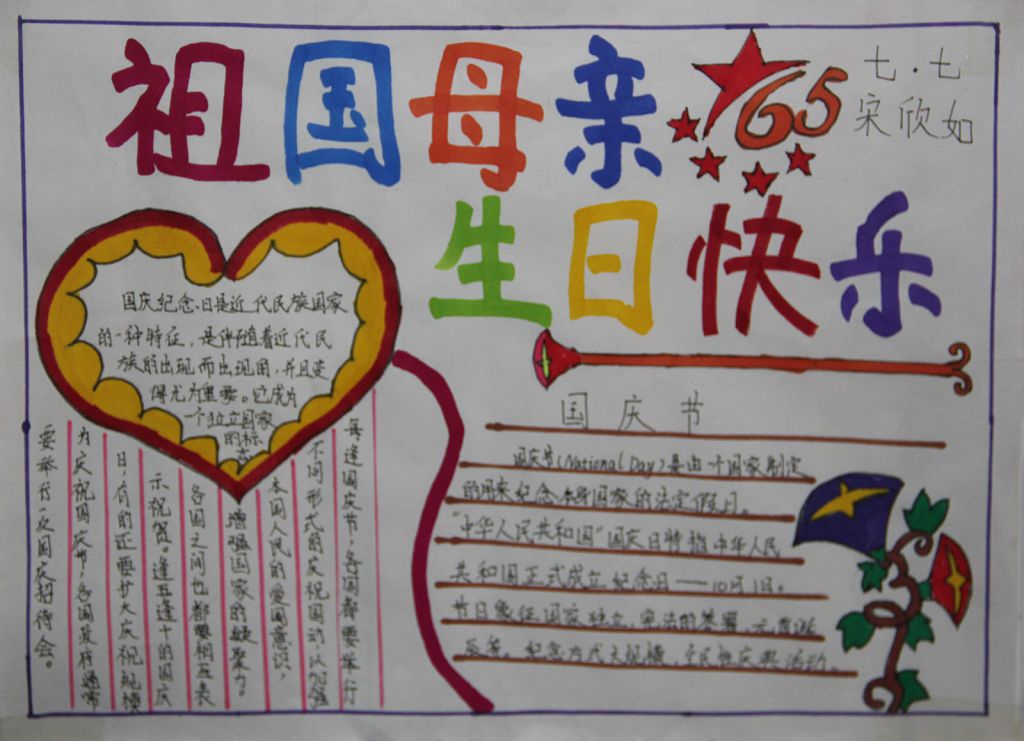 祖国母亲
65
七.七
宋欣如
生日快乐
国庆纪念日是近代民族国家
的一种特征，是伴随着近代民
族的出现而出现的，并且变
得尤为重要。它成为
一个独立国家
的标
志
每逢国庆节，各国都要举行
不同形式的庆祝国动，以加强
本国人民的爱国意识，
增强国家的凝聚力。
各国之间也都要相互表
示祝贺。逢五逢十的国庆
日，有的还要扩大庆祝规模
为庆祝国庆节，各国政府通常
要举行一次国庆招待会。
国庆节
国庆节(National Day)是由一个国家制定
的用来纪念本身国家的法定假日。
"中华人民共和国"国庆日特指中华人民
共和国正式成立纪念日——10月1日。
节日象征国家独立、宪法的签署、元首诞
辰等。纪念方式大规模、全民性庆典活动。